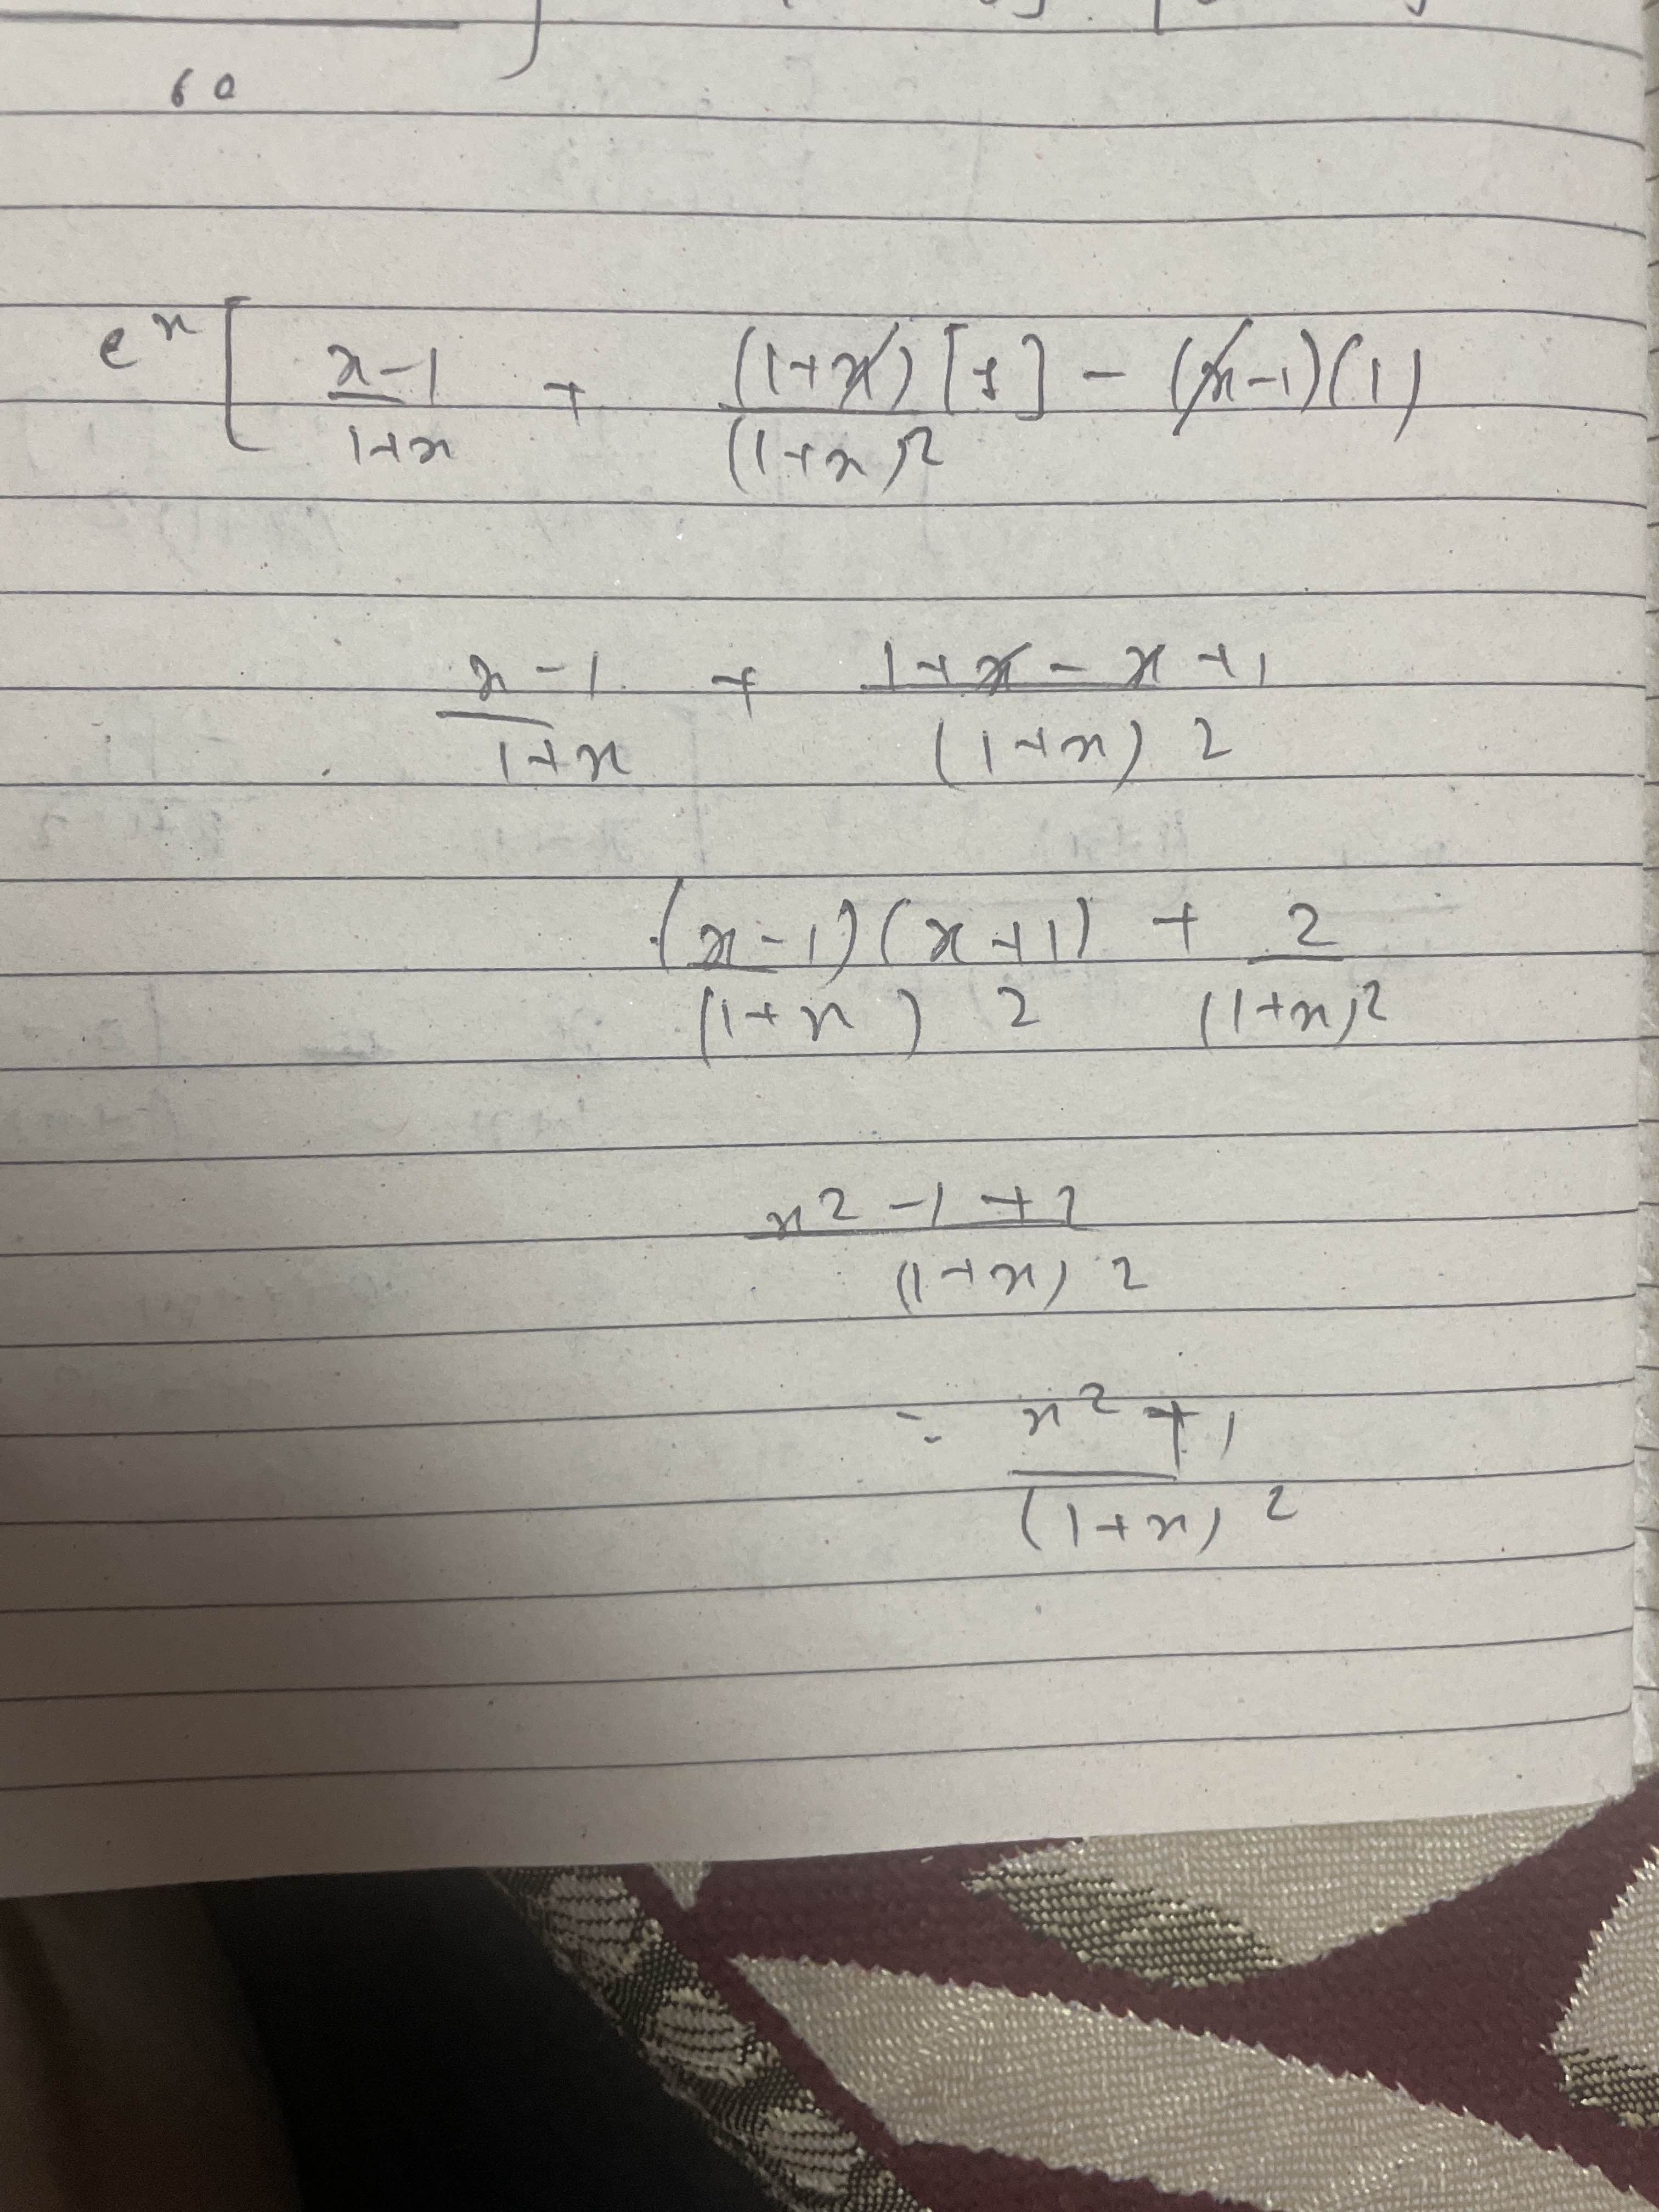 60
e^x [ x-1/1+x + (1+x)[1] - (x-1)(1)/(1+x)^2
x-1/1+x + 1+x-x+1/(1+x)2
(x-1)(x+1)/(1+x)2 + 2/(1+x)^2
x2-1+2/(1+x)2
= x^2+1/(1+x)^2